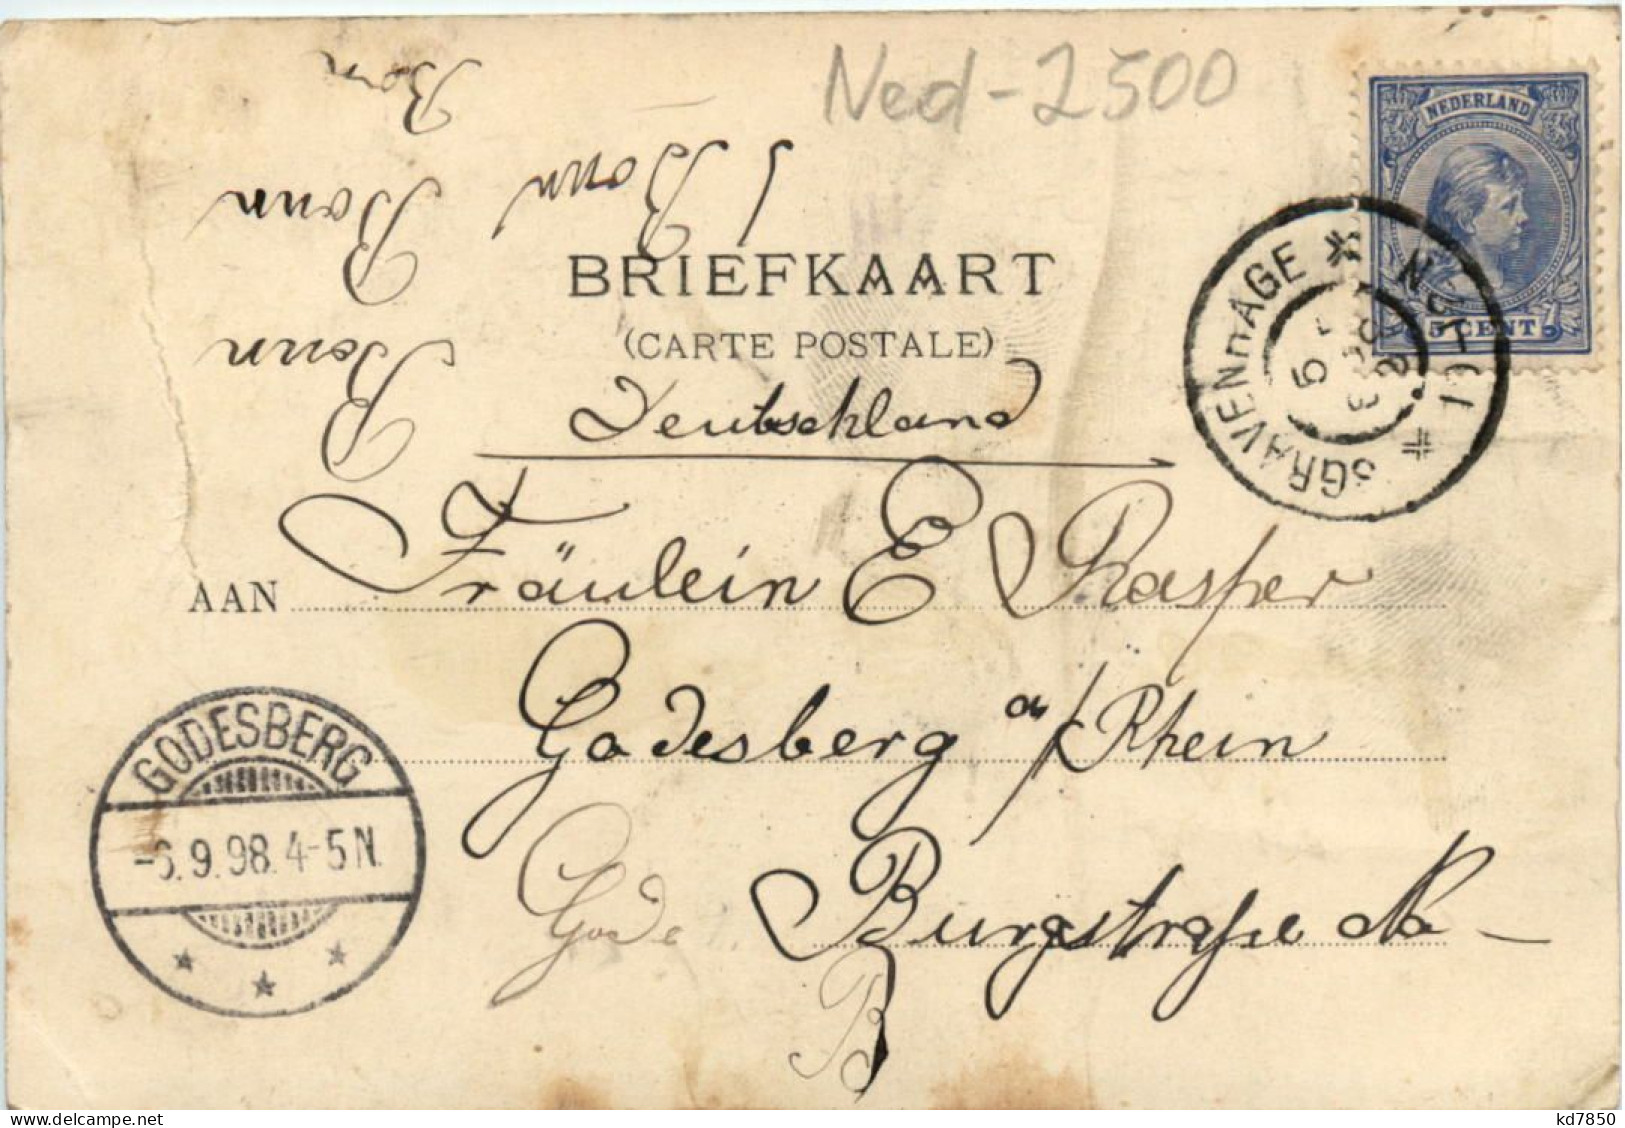 Ned-2500
Bonn
Bonn
Bonn
Bonn
NEDERLAND
5 CENT
BRIEFKAART
(CARTE POSTALE)
'SGRAVENHAGE
5
Deutschland
AAN Fräulein E Rasper
Godesberg a/Rhein
Burgstraße No
Gode
B
GODESBERG
-6.9.98.4-5N.
www.delcampe.net
kd7850